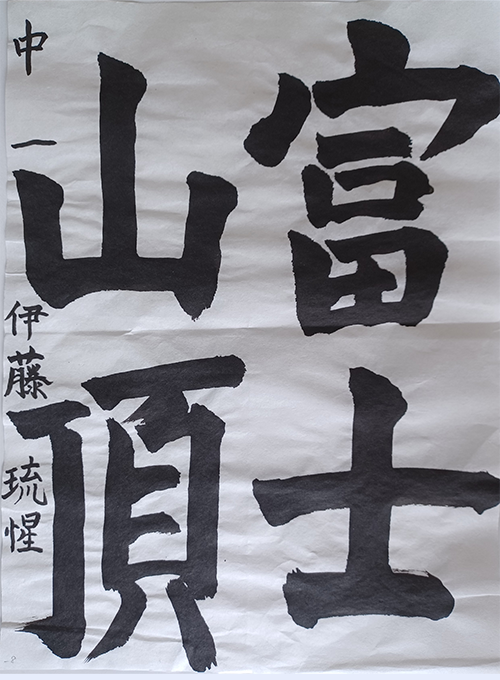 富士
山頂
中一 伊藤 琉惺